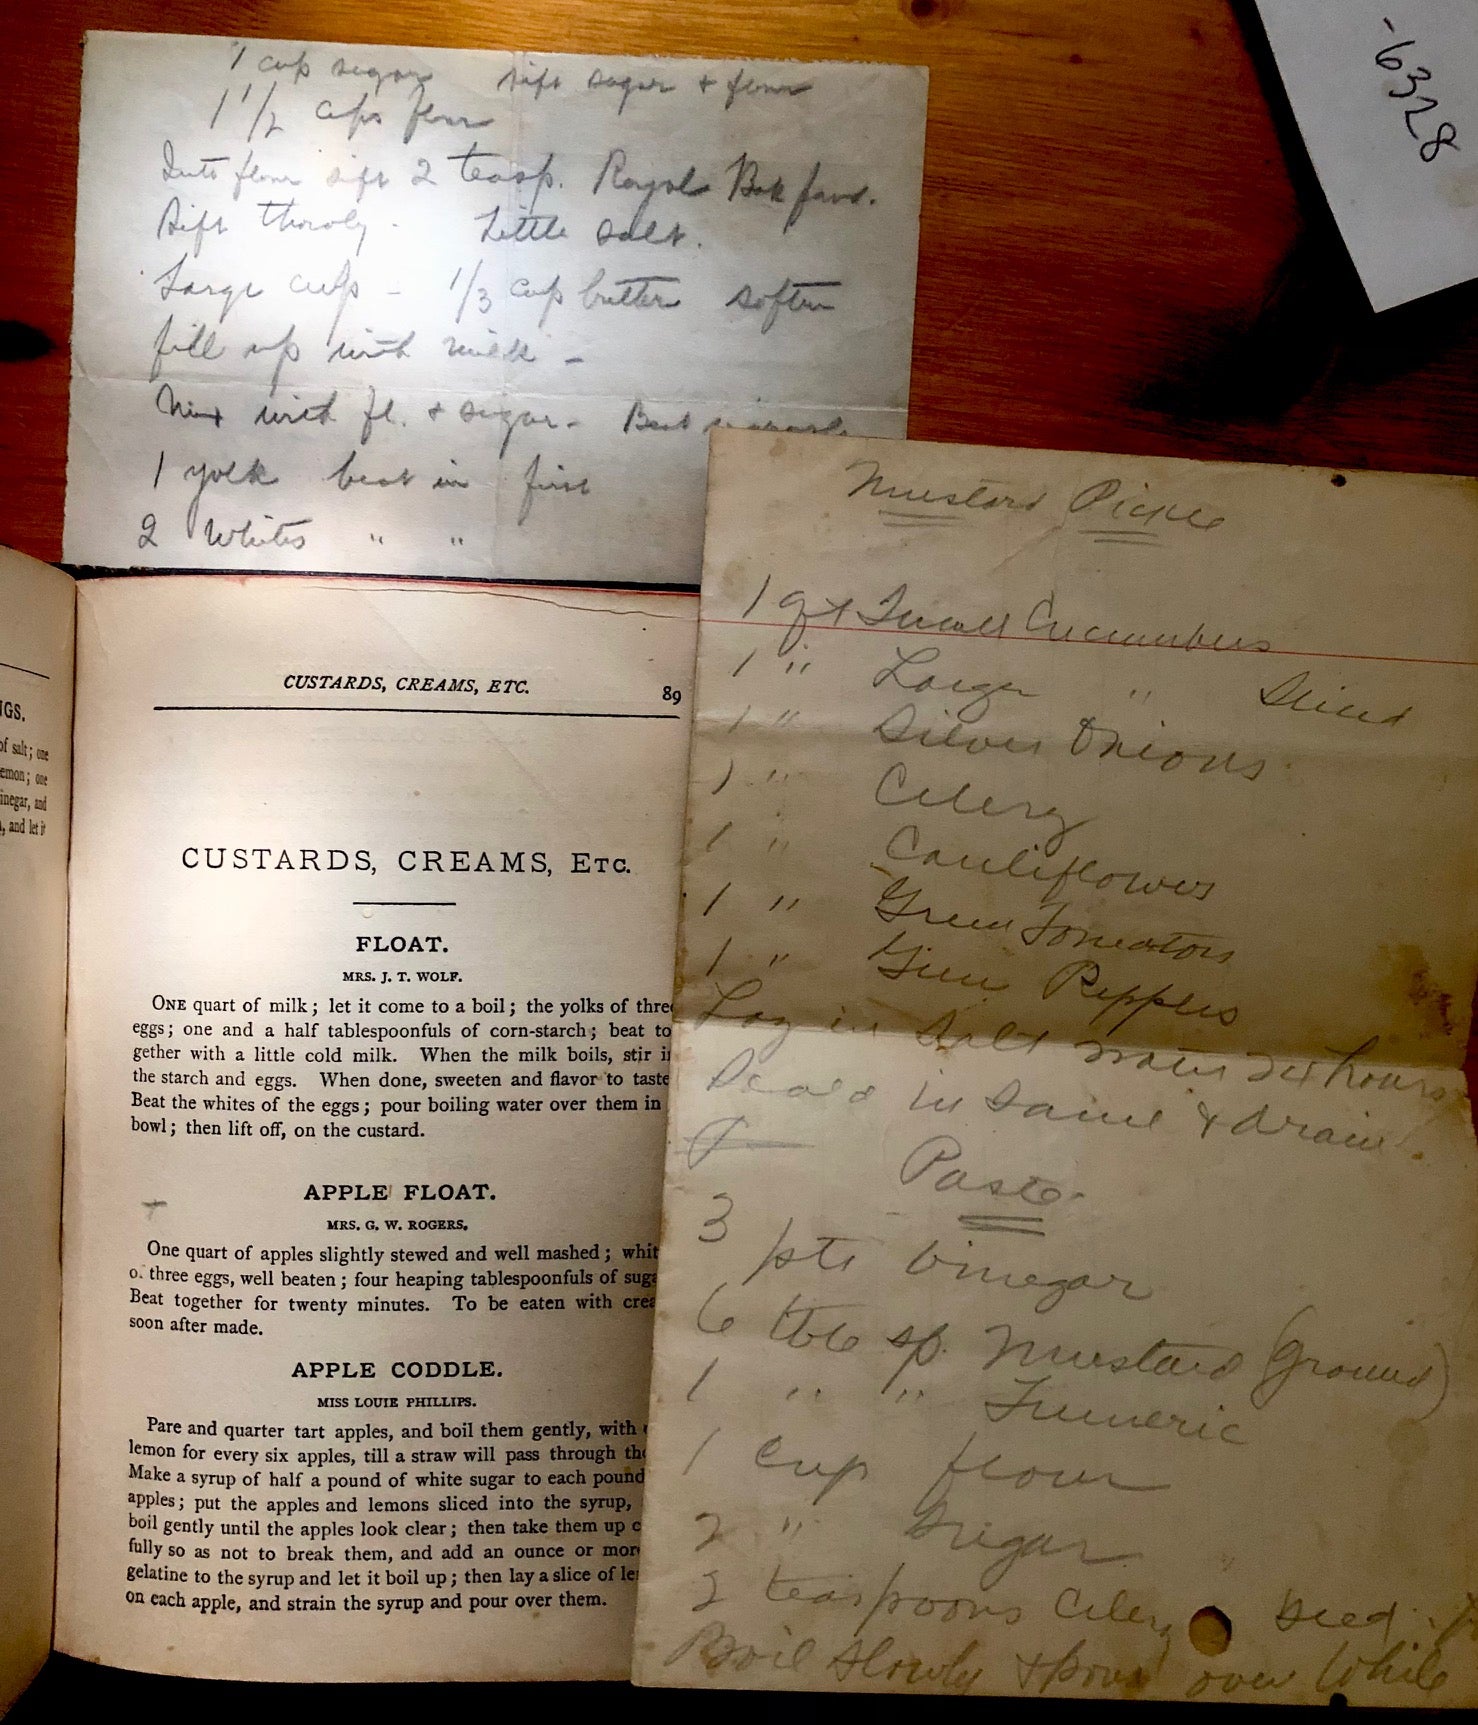 1 cup sugar sift sugar + flour
1 1/2 cups flour
Into flour sift 2 teasp. Royal Bak powd.
Sift thoroly - Little salt.
Large cup - 1/3 cup butter soften
fill up with milk -
Mix with fl. + sugar - Beat
1 yolk beat in first
2 Whites " "
-6328
Mustard Pickle
1 qt Small Cucumbers
1 " Large " Sliced
1 " Silver Onions
1 " Celery
1 " Cauliflower
1 " Green Tomatoes
1 " Green Pepples
Lay in salt water 24 hours
Scald in same & drain.
Paste
3 pts Vinegar
6 tble sp. Mustard (ground)
1 " " Tumeric
1 cup flour
2 " Sugar
2 teaspoons Celery Seed
Boil slowly & pour over while
NGS.
of salt; one
emon; one
inegar, and
, and let it
CUSTARDS, CREAMS, ETC. 89
CUSTARDS, CREAMS, ETC.
FLOAT.
MRS. J. T. WOLF.
ONE quart of milk; let it come to a boil; the yolks of three
eggs; one and a half tablespoonfuls of corn-starch; beat to
gether with a little cold milk. When the milk boils, stir in
the starch and eggs. When done, sweeten and flavor to taste
Beat the whites of the eggs; pour boiling water over them in
bowl; then lift off, on the custard.
APPLE FLOAT.
MRS. G. W. ROGERS.
One quart of apples slightly stewed and well mashed; whit
of three eggs, well beaten; four heaping tablespoonfuls of suga
Beat together for twenty minutes. To be eaten with crea
soon after made.
APPLE CODDLE.
MISS LOUIE PHILLIPS.
Pare and quarter tart apples, and boil them gently, with
lemon for every six apples, till a straw will pass through the
Make a syrup of half a pound of white sugar to each pound
apples; put the apples and lemons sliced into the syrup,
boil gently until the apples look clear; then take them up c
fully so as not to break them, and add an ounce or more
gelatine to the syrup and let it boil up; then lay a slice of le
on each apple, and strain the syrup and pour over them.